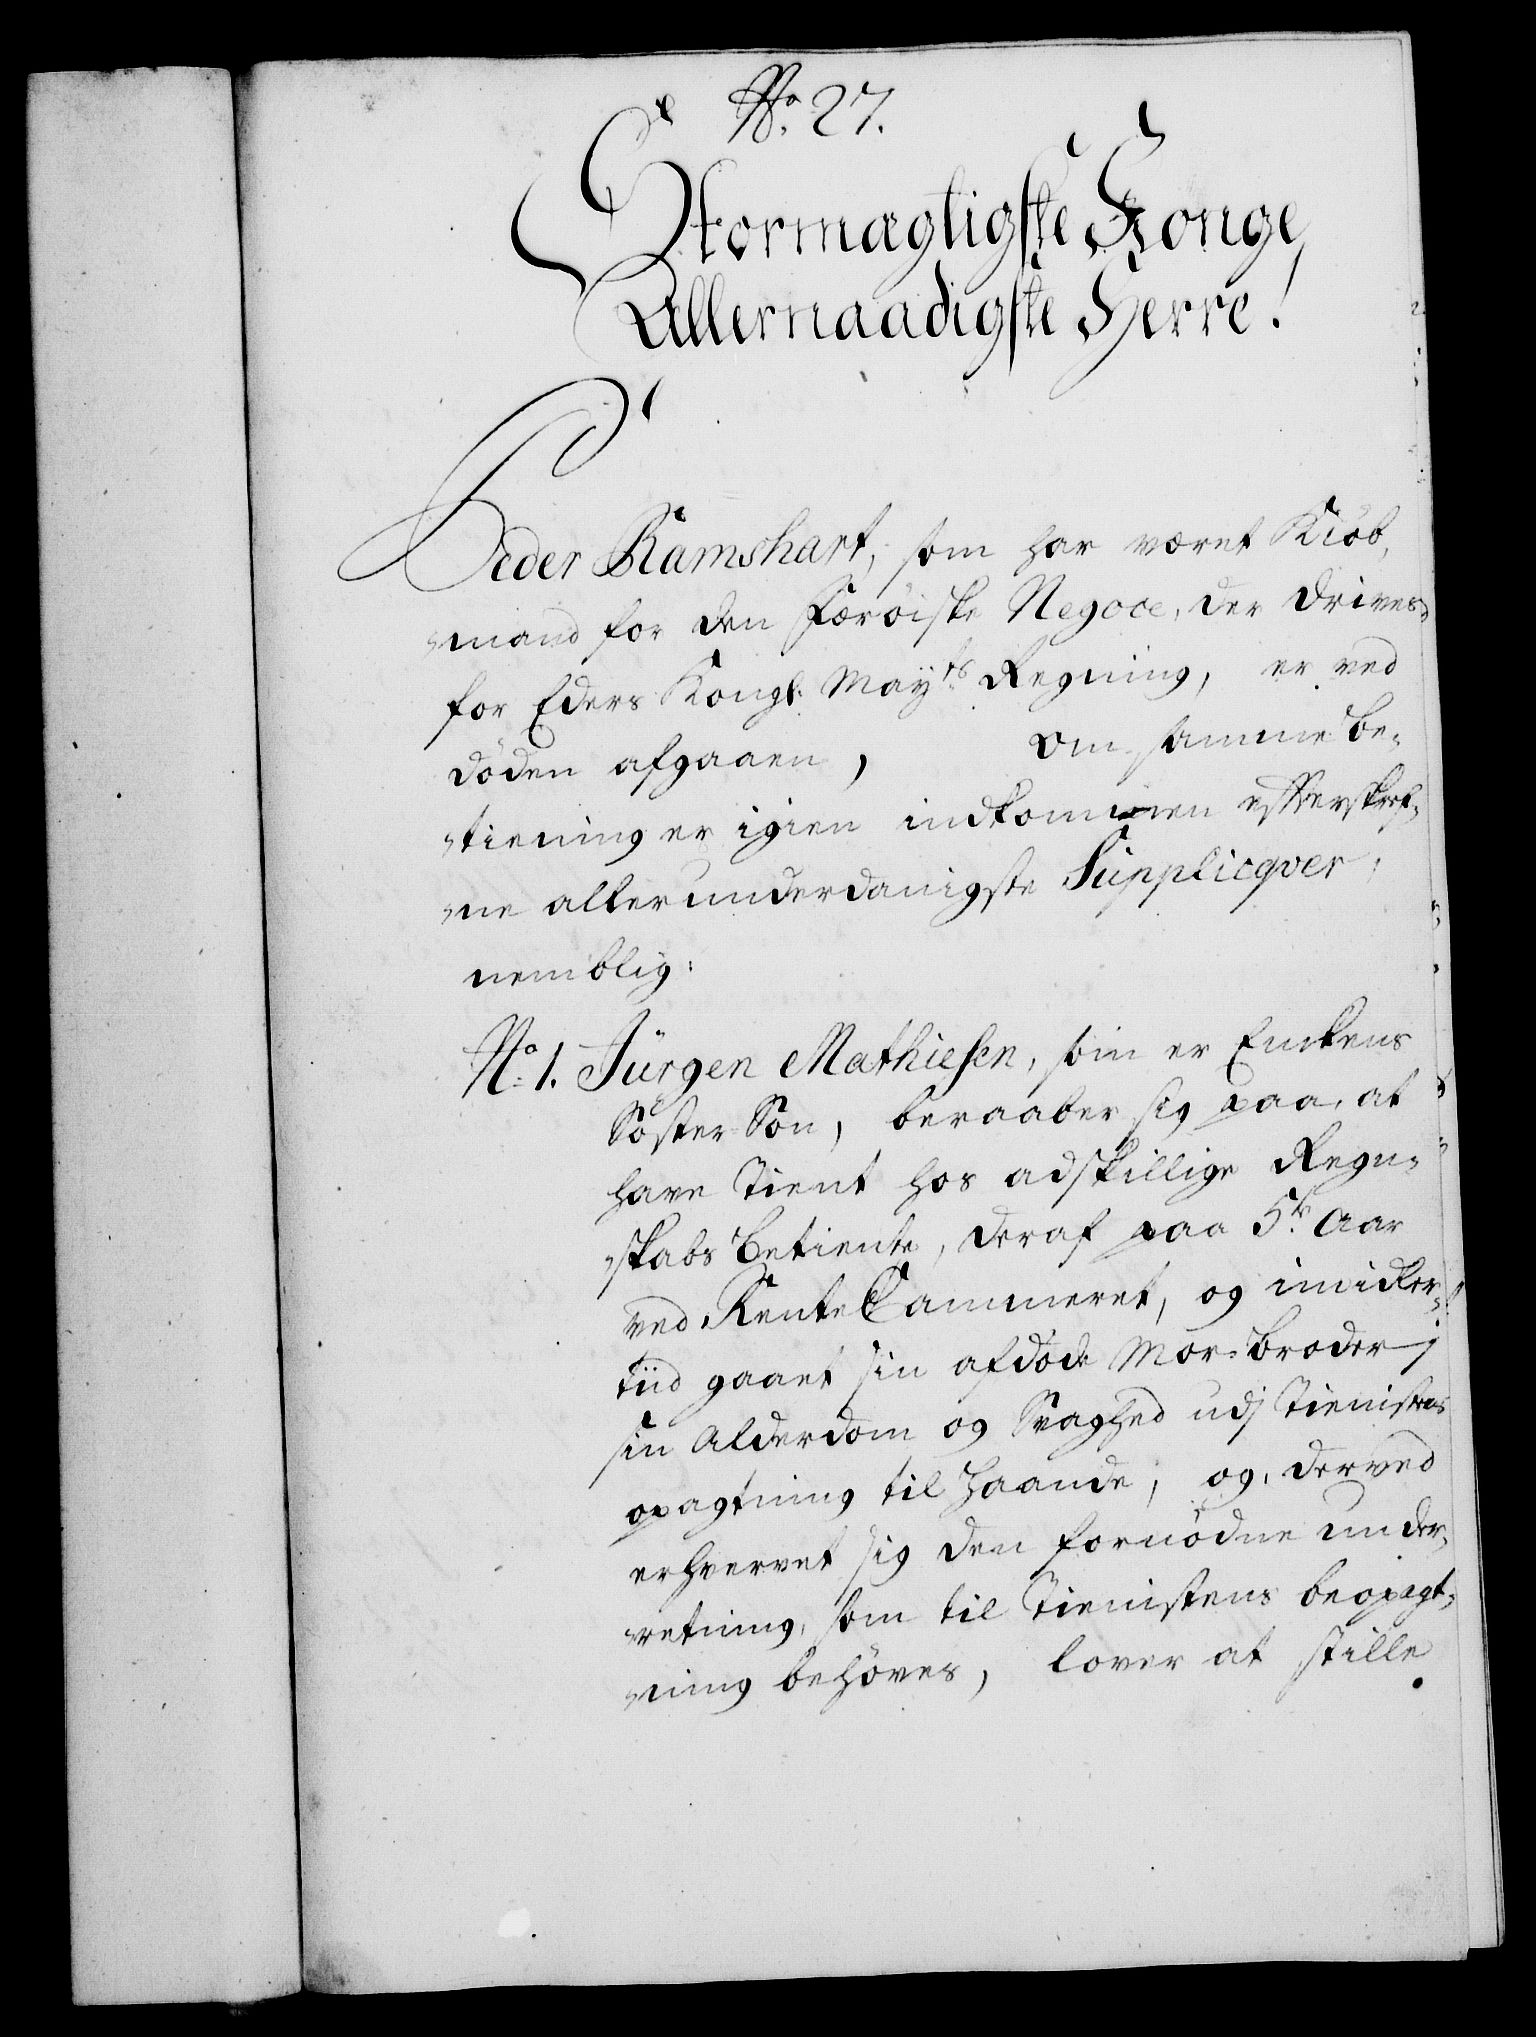 No. 27.
Stormægtigste Konge
Allernaadigste Herre!
Peder Ramshart, som har været Kiöb,
mand for den Færöiske Negoce, der drives
for Eders Kongl: Mayts Regning, er ved
döden afgaaen, om samme be-
tiening er igien indkommen effterskref-
ne allerunderdanigste Supplicqver,
nemblig:
No. 1. Jürgen Mathiesen, som er Enckens
Söster-Sön, beraaber sig paa, at
have tient hos adskillige Regn-
skabs betiente, deraf paa 5te Aar
ved RenteCammeret, og imidler-
tiid gaaet sin afdöde Mor-broder i
sin Alderdom og Svaghed udj Tienistens
opagtning til haande, og derved
erhvervet sig den fornödne under-
retning, som til Tienistens beopagt-
ning behöves, lover at stille